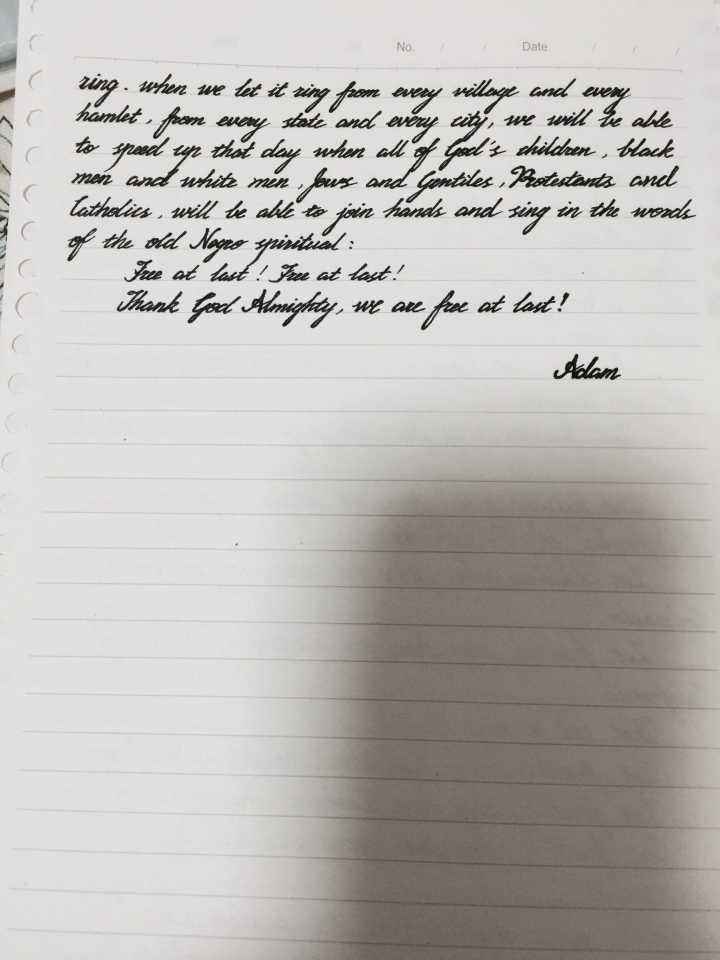 No. / / Date / / /
ring. when we let it ring from every village and every
hamlet, from every state and every city, we will be able
to speed up that day when all of God's children, black
men and white men, Jews and Gentiles, Protestants and
Catholics, will be able to join hands and sing in the words
of the old Negro spiritual:
Free at last! Free at last!
Thank God Almighty, we are free at last!
Adam